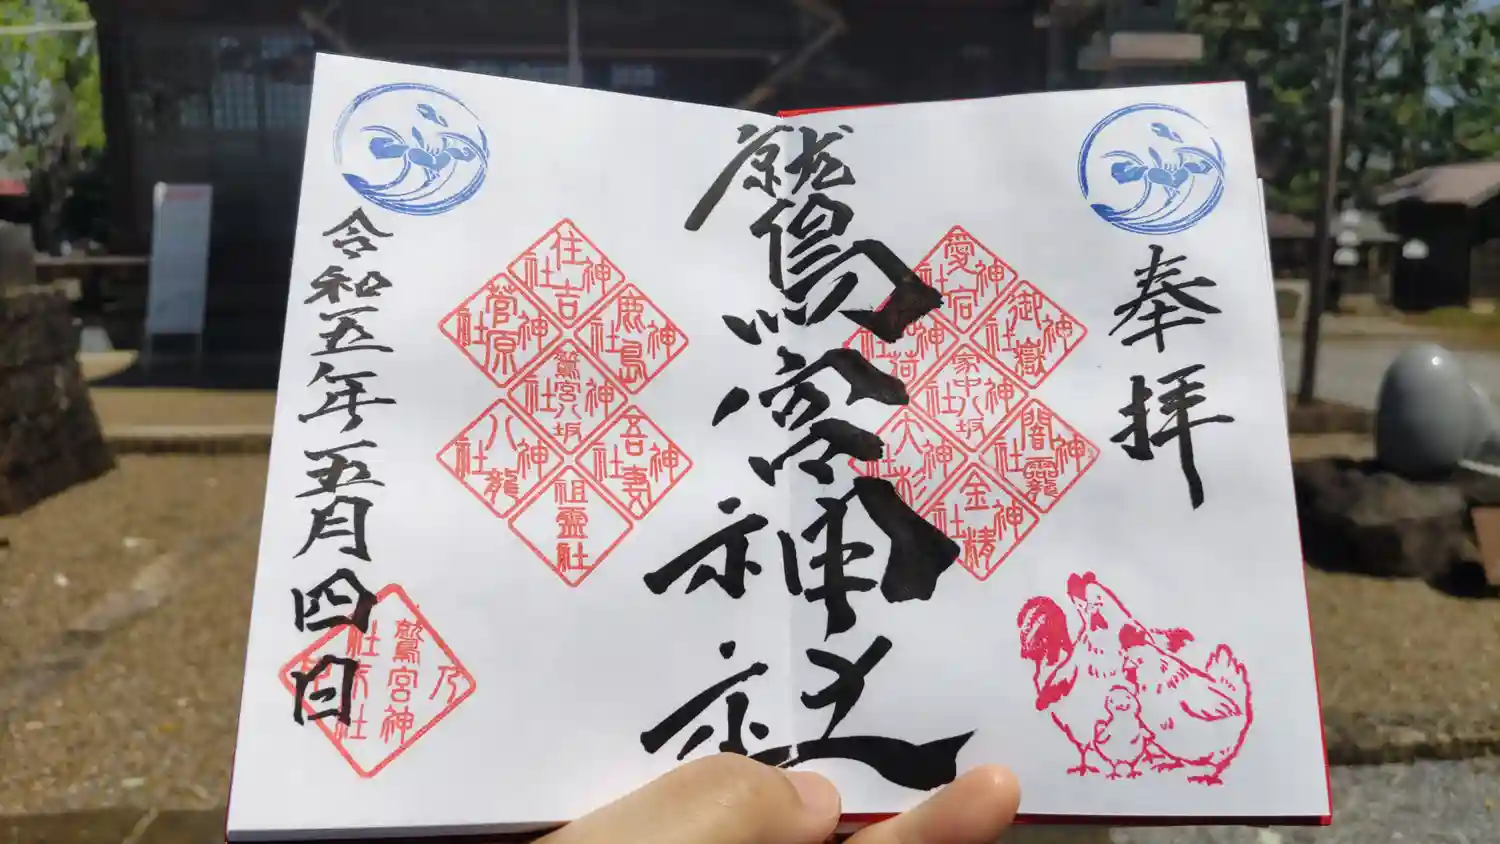 奉拝
愛宕神社
御嶽神社
稲荷神社
家中八坂神社
闇龗神社
大杉神社
金精神社
鷲宮神社
住吉神社
鹿島神社
菅原神社
鷲宮八坂神社
吾妻神社
八龍神社
祖霊社
令和五年五月四日
鷲宮神